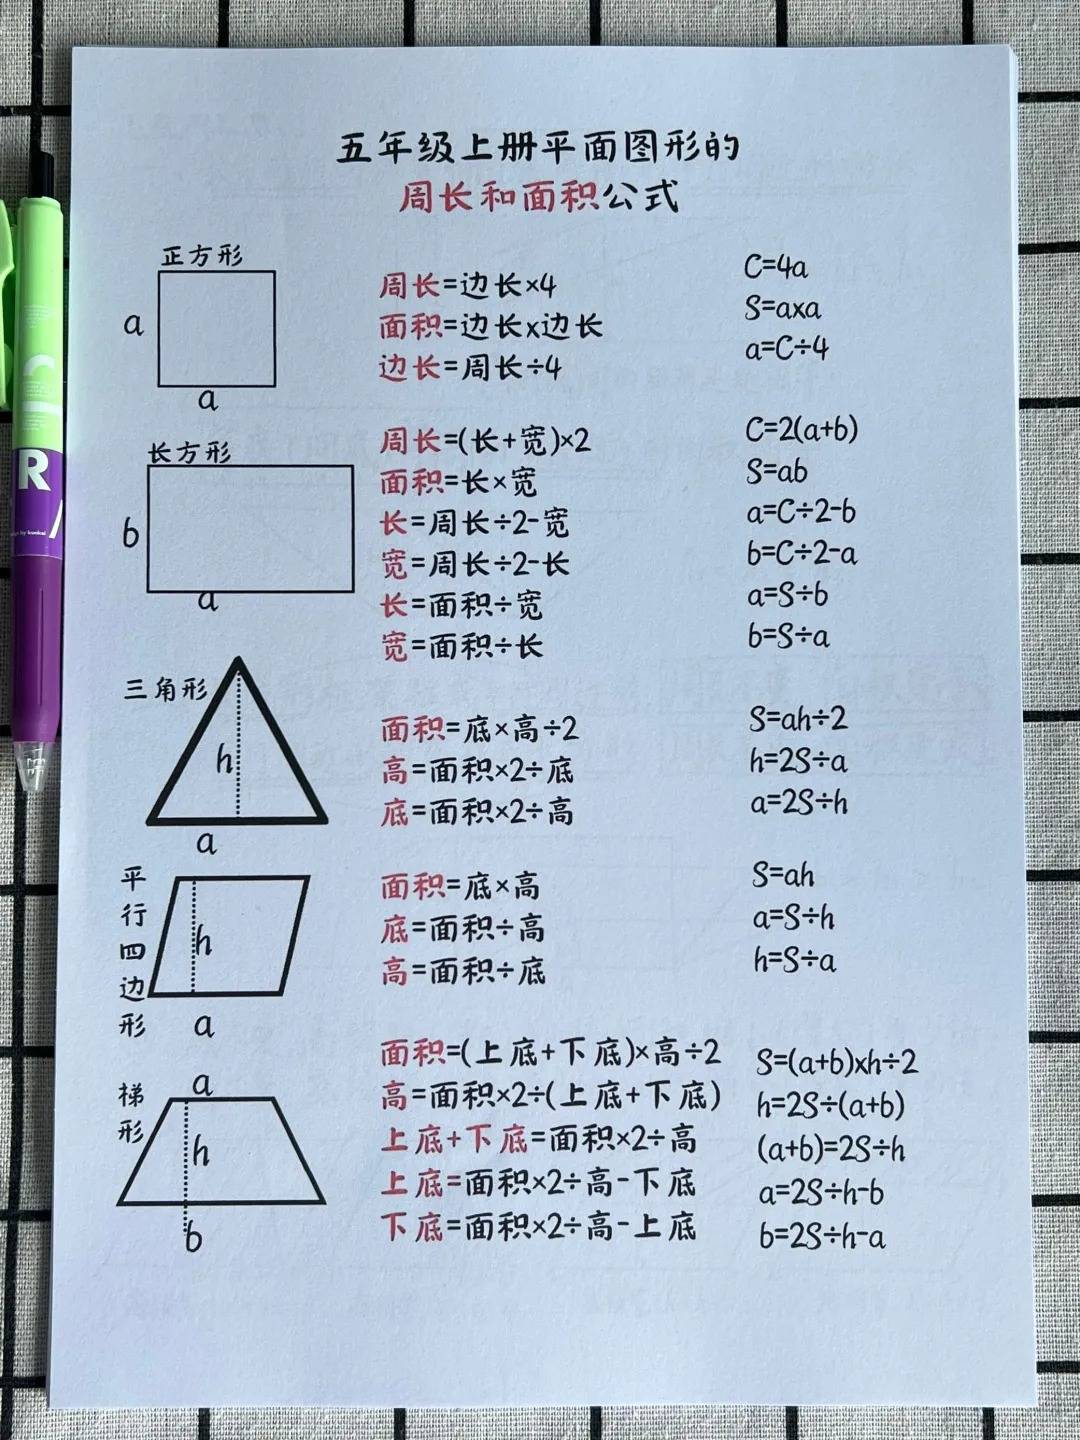 五年级上册平面图形的
周长和面积公式
正方形
a
a
周长=边长×4
面积=边长x边长
边长=周长÷4
C=4a
S=axa
a=C÷4
长方形
b
a
周长=(长+宽)×2
面积=长×宽
长=周长÷2-宽
宽=周长÷2-长
长=面积÷宽
宽=面积÷长
C=2(a+b)
S=ab
a=C÷2-b
b=C÷2-a
a=S÷b
b=S÷a
三角形
h
a
面积=底×高÷2
高=面积×2÷底
底=面积×2÷高
S=ah÷2
h=2S÷a
a=2S÷h
平行四边形
h
a
面积=底×高
底=面积÷高
高=面积÷底
S=ah
a=S÷h
h=S÷a
梯形
a
h
b
面积=(上底+下底)×高÷2
高=面积×2÷(上底+下底)
上底+下底=面积×2÷高
上底=面积×2÷高-下底
下底=面积×2÷高-上底
S=(a+b)xh÷2
h=2S÷(a+b)
(a+b)=2S÷h
a=2S÷h-b
b=2S÷h-a
R